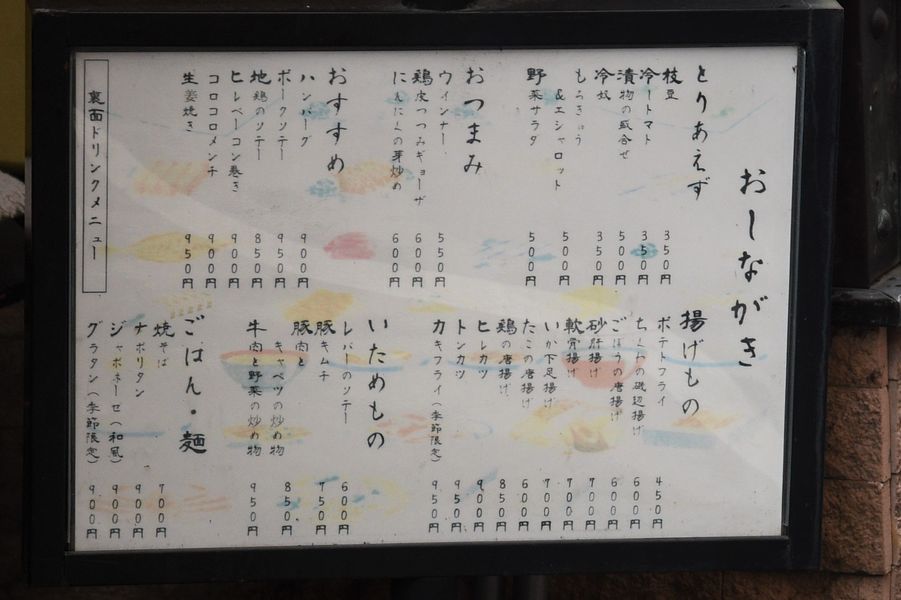 おしながき
とりあえず
枝豆 350円
冷トマト 350円
漬物の盛合せ 500円
冷奴 350円
もろきゅう
&エシャロット 500円
野菜サラダ 500円
おつまみ
ウインナー 550円
鶏皮つつみギョーザ 600円
にんにくの芽炒め 600円
おすすめ
ハンバーグ 900円
ポークソテー 950円
地鶏のソテー 850円
ヒレベーコン巻き 900円
コロコロメンチ 900円
生姜焼き 950円
揚げもの
ポテトフライ 450円
ちくわの磯辺揚げ 600円
ごぼうの唐揚げ 600円
砂肝揚げ 700円
軟骨揚げ 700円
いか下足揚げ 700円
たこの唐揚げ 600円
鶏の唐揚げ 850円
ヒレカツ 900円
トンカツ 950円
カキフライ(季節限定) 950円
いためもの
レバーのソテー 600円
豚キムチ 750円
豚肉と
キャベツの炒め物 850円
牛肉と野菜の炒め物 950円
ごはん・麺
焼そば 700円
ナポリタン 900円
ジャポネーゼ(和風) 900円
グラタン(季節限定) 900円
裏面ドリンクメニュー